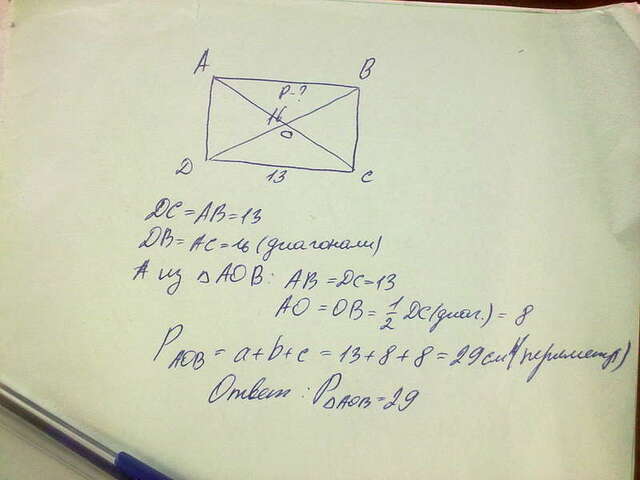 A B
P-?
16
O
D 13 C
DC = AB = 13
DB = AC = 16 (диагонали)
A из △AOB: AB = DC = 13
AO = OB = 1/2 DC (диаг.) = 8
P AOB = a + b + c = 13 + 8 + 8 = 29 см (периметр)
Ответ: P△AOB = 29